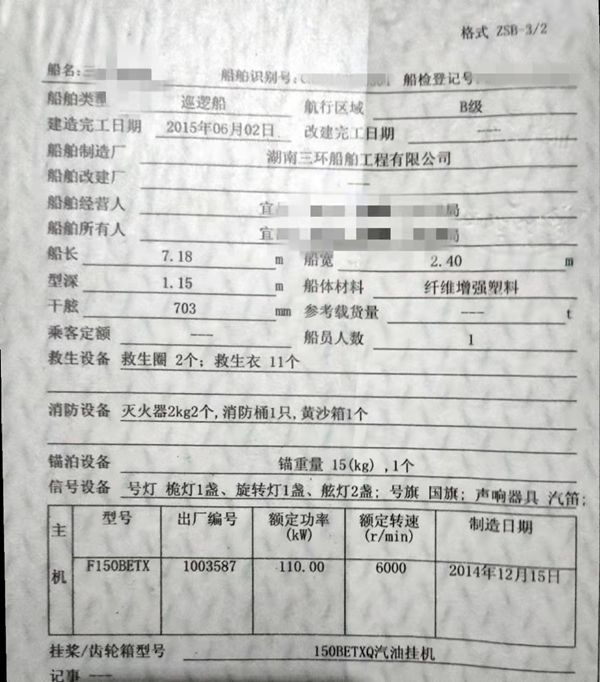 格式 ZSB-3/2
船名:三 船舶识别号: 船检登记号:
船舶类型 巡逻船 航行区域 B级
建造完工日期 2015年06月02日 改建完工日期 ---
船舶制造厂 湖南三环船舶工程有限公司
船舶改建厂 ---
船舶经营人 宜 局
船舶所有人 宜 局
船长 7.18 m 船宽 2.40 m
型深 1.15 m 船体材料 纤维增强塑料
干舷 703 mm 参考载货量 --- t
乘客定额 --- 船员人数 1
救生设备 救生圈 2个; 救生衣 11个
消防设备 灭火器2kg2个,消防桶1只,黄沙箱1个
锚泊设备 锚重量 15(kg) ,1个
信号设备 号灯 桅灯1盏、旋转灯1盏、舷灯2盏; 号旗 国旗; 声响器具 汽笛;
主机 型号 出厂编号 额定功率(kW) 额定转速(r/min) 制造日期
F150BETX 1003587 110.00 6000 2014年12月15日
挂桨/齿轮箱型号 150BETXQ汽油挂机
记事 ---